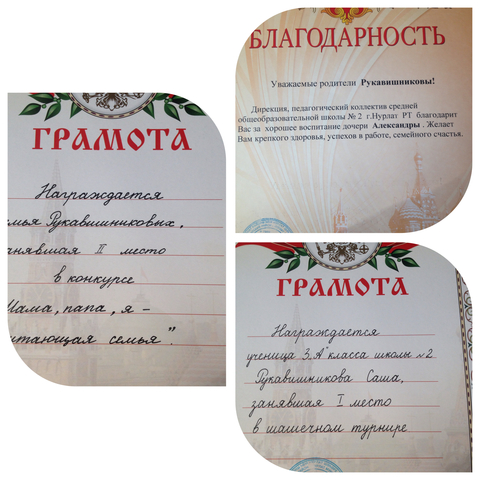 БЛАГОДАРНОСТЬ
Уважаемые родители Рукавишниковы!
Дирекция, педагогический коллектив средней
общеобразовательной школы № 2 г.Нурлат РТ благодарит
Вас за хорошее воспитание дочери Александры . Желает
Вам крепкого здоровья, успехов в работе, семейного счастья.
ГРАМОТА
Награждается
емья Рукавишниковых,
анявшая II место
в конкурсе
Мама, папа, я –
итающая семья".
ГРАМОТА
Награждается
ученица 3.А класса школы №2
Рукавишникова Саша,
занявшая I место
в шашечном турнире